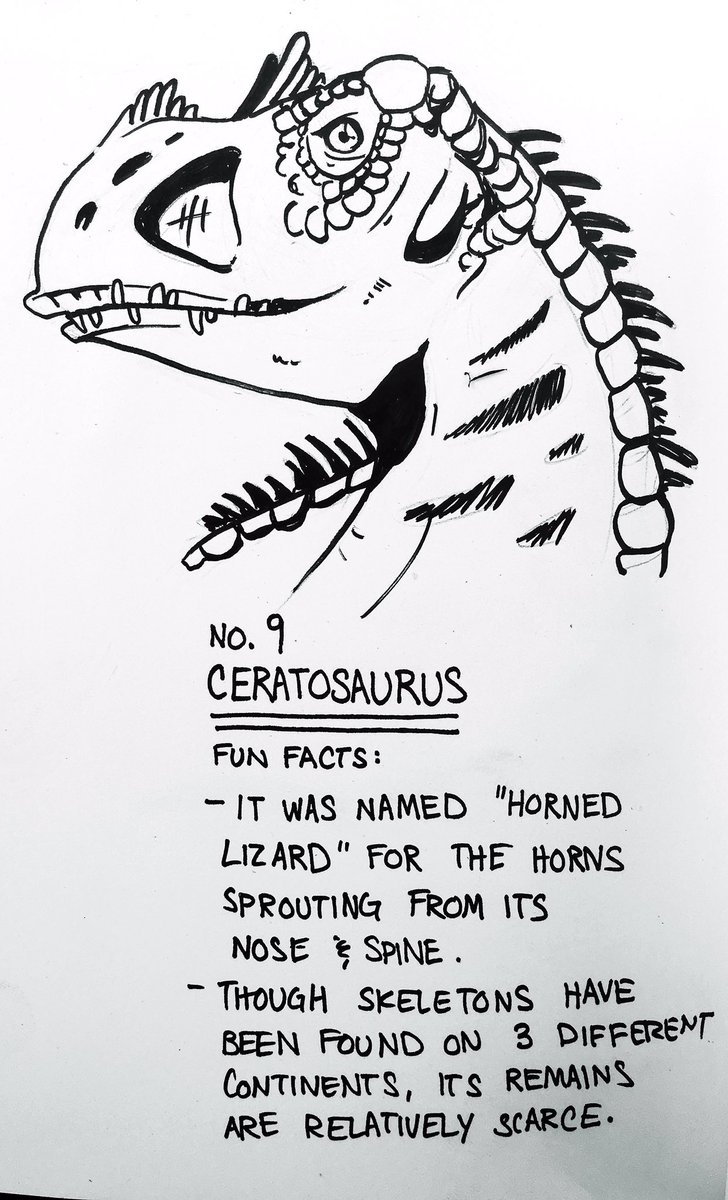 NO. 9
CERATOSAURUS
FUN FACTS:
- IT WAS NAMED "HORNED
LIZARD" FOR THE HORNS
SPROUTING FROM ITS
NOSE & SPINE.
- THOUGH SKELETONS HAVE
BEEN FOUND ON 3 DIFFERENT
CONTINENTS, ITS REMAINS
ARE RELATIVELY SCARCE.